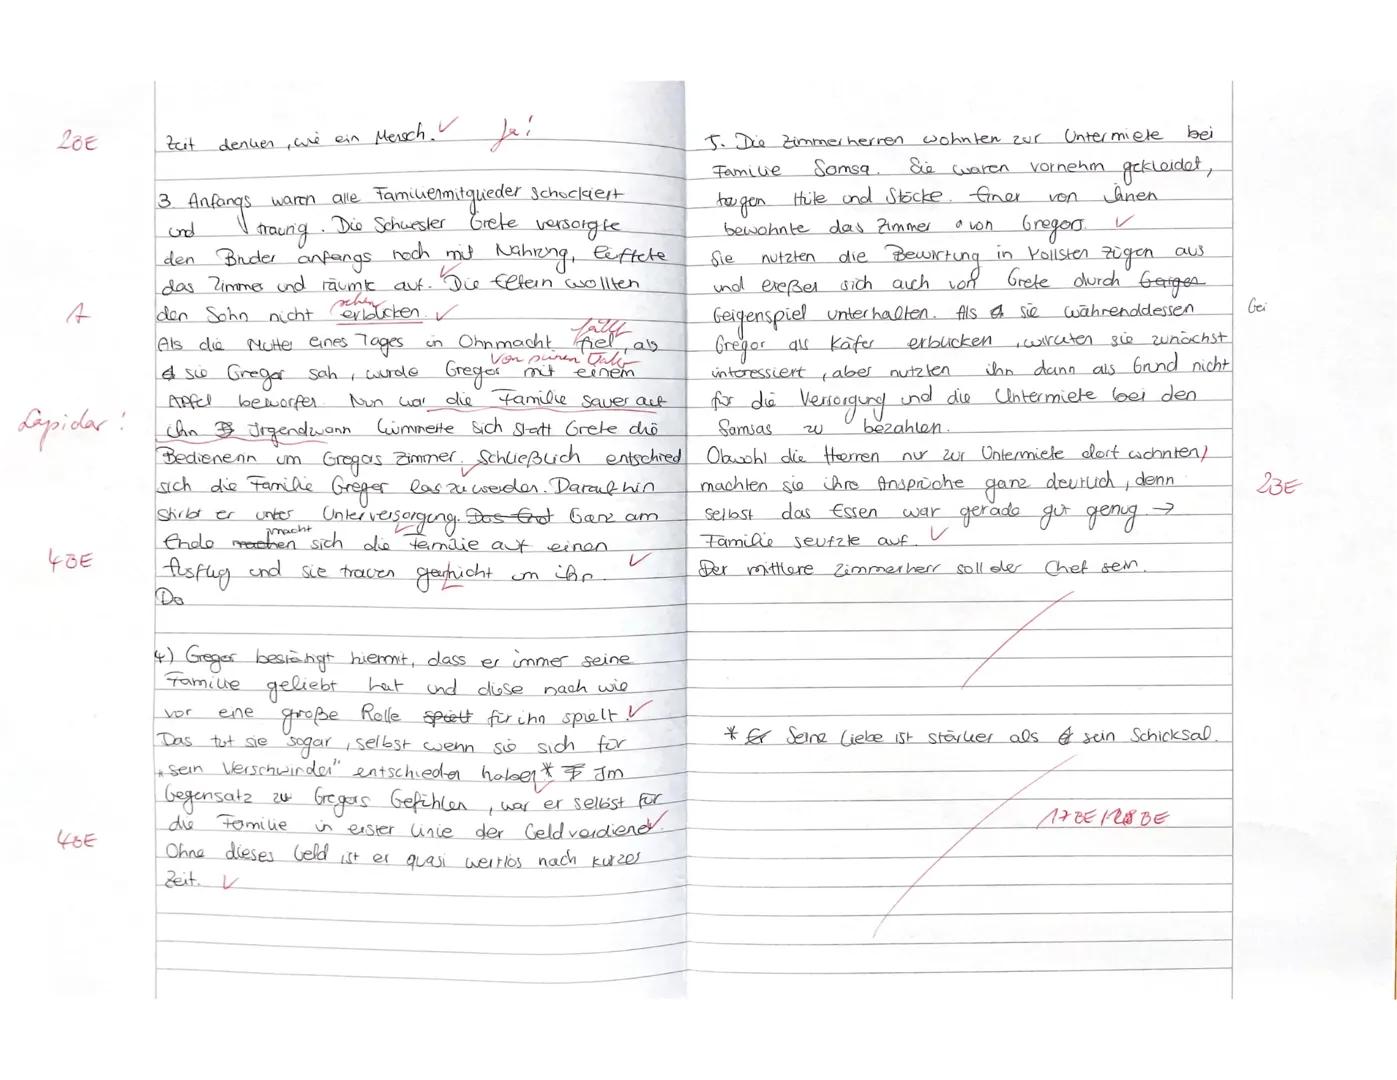 2BE
Zeit denken, wie ein Mensch. Ja!
3. Anfangs waren alle Familienmitglieder schockiert
und traurig. Die Schwester Grete versorgte
den Bruder anfangs noch mit Nahrung, lüftete
das Zimmer und räumte auf. Die Eltern wollten
sehen
A
den Sohn nicht erblicken.
fällt
Als die Mutter eines Tages in Ohnmacht fiel, als
von seinem Vater
sie Gregor sah, wurde Gregor mit einem
Apfel beworfen. Nun war die Familie sauer auf
Lapidar!
ihn. Irgendwann kümmerte sich statt Grete die
Bedienerin um Gregors Zimmer. Schließlich entschied
sich die Familie Gregor los zu werden. Daraufhin
stirbt er unter Unterversorgung. Das End Ganz am
macht
Ende machen sich die Familie auf einen
4BE
Ausflug und sie trauen garnicht um ihn.
Da
4) Gregor bestätigt hiermit, dass er immer seine
Familie geliebt hat und diese nach wie
vor eine große Rolle spielt für ihn spielt.
Das tut sie sogar, selbst wenn sie sich für
"sein Verschwinden" entschieden haben* Im
Gegensatz zu Gregors Gefühlen, war er selbst für
die Familie in erster Linie der Geldverdiener.
4BE
Ohne dieses Geld ist er quasi wertlos nach kurzer
Zeit.
5. Die Zimmerherren wohnten zur Untermiete bei
Familie Samsa. Sie waren vornehm gekleidet,
trugen Hüte und Stöcke. Einer von ihnen
bewohnte das Zimmer von Gregors.
Sie nutzten die Bewirtung in vollsten Zügen aus
und ließen sich auch von Grete durch Geigen
Gei
Geigenspiel unterhalten. Als sie währenddessen
Gregor als Käfer erblicken, wirkten sie zunächst
interessiert, aber nutzten ihn dann als Grund nicht
für die Versorgung und die Untermiete bei den
Samsas zu bezahlen.
Obwohl die Herren nur zur Untermiete dort wohnten,
machten sie ihre Ansprüche ganz deutlich, denn
2BE
selbst das Essen war gerade gut genug →
Familie seufzte auf.
Der mittlere Zimmerherr soll der Chef sein.
* Er Seine Liebe ist stärker als sein Schicksal.
17BE/28BE